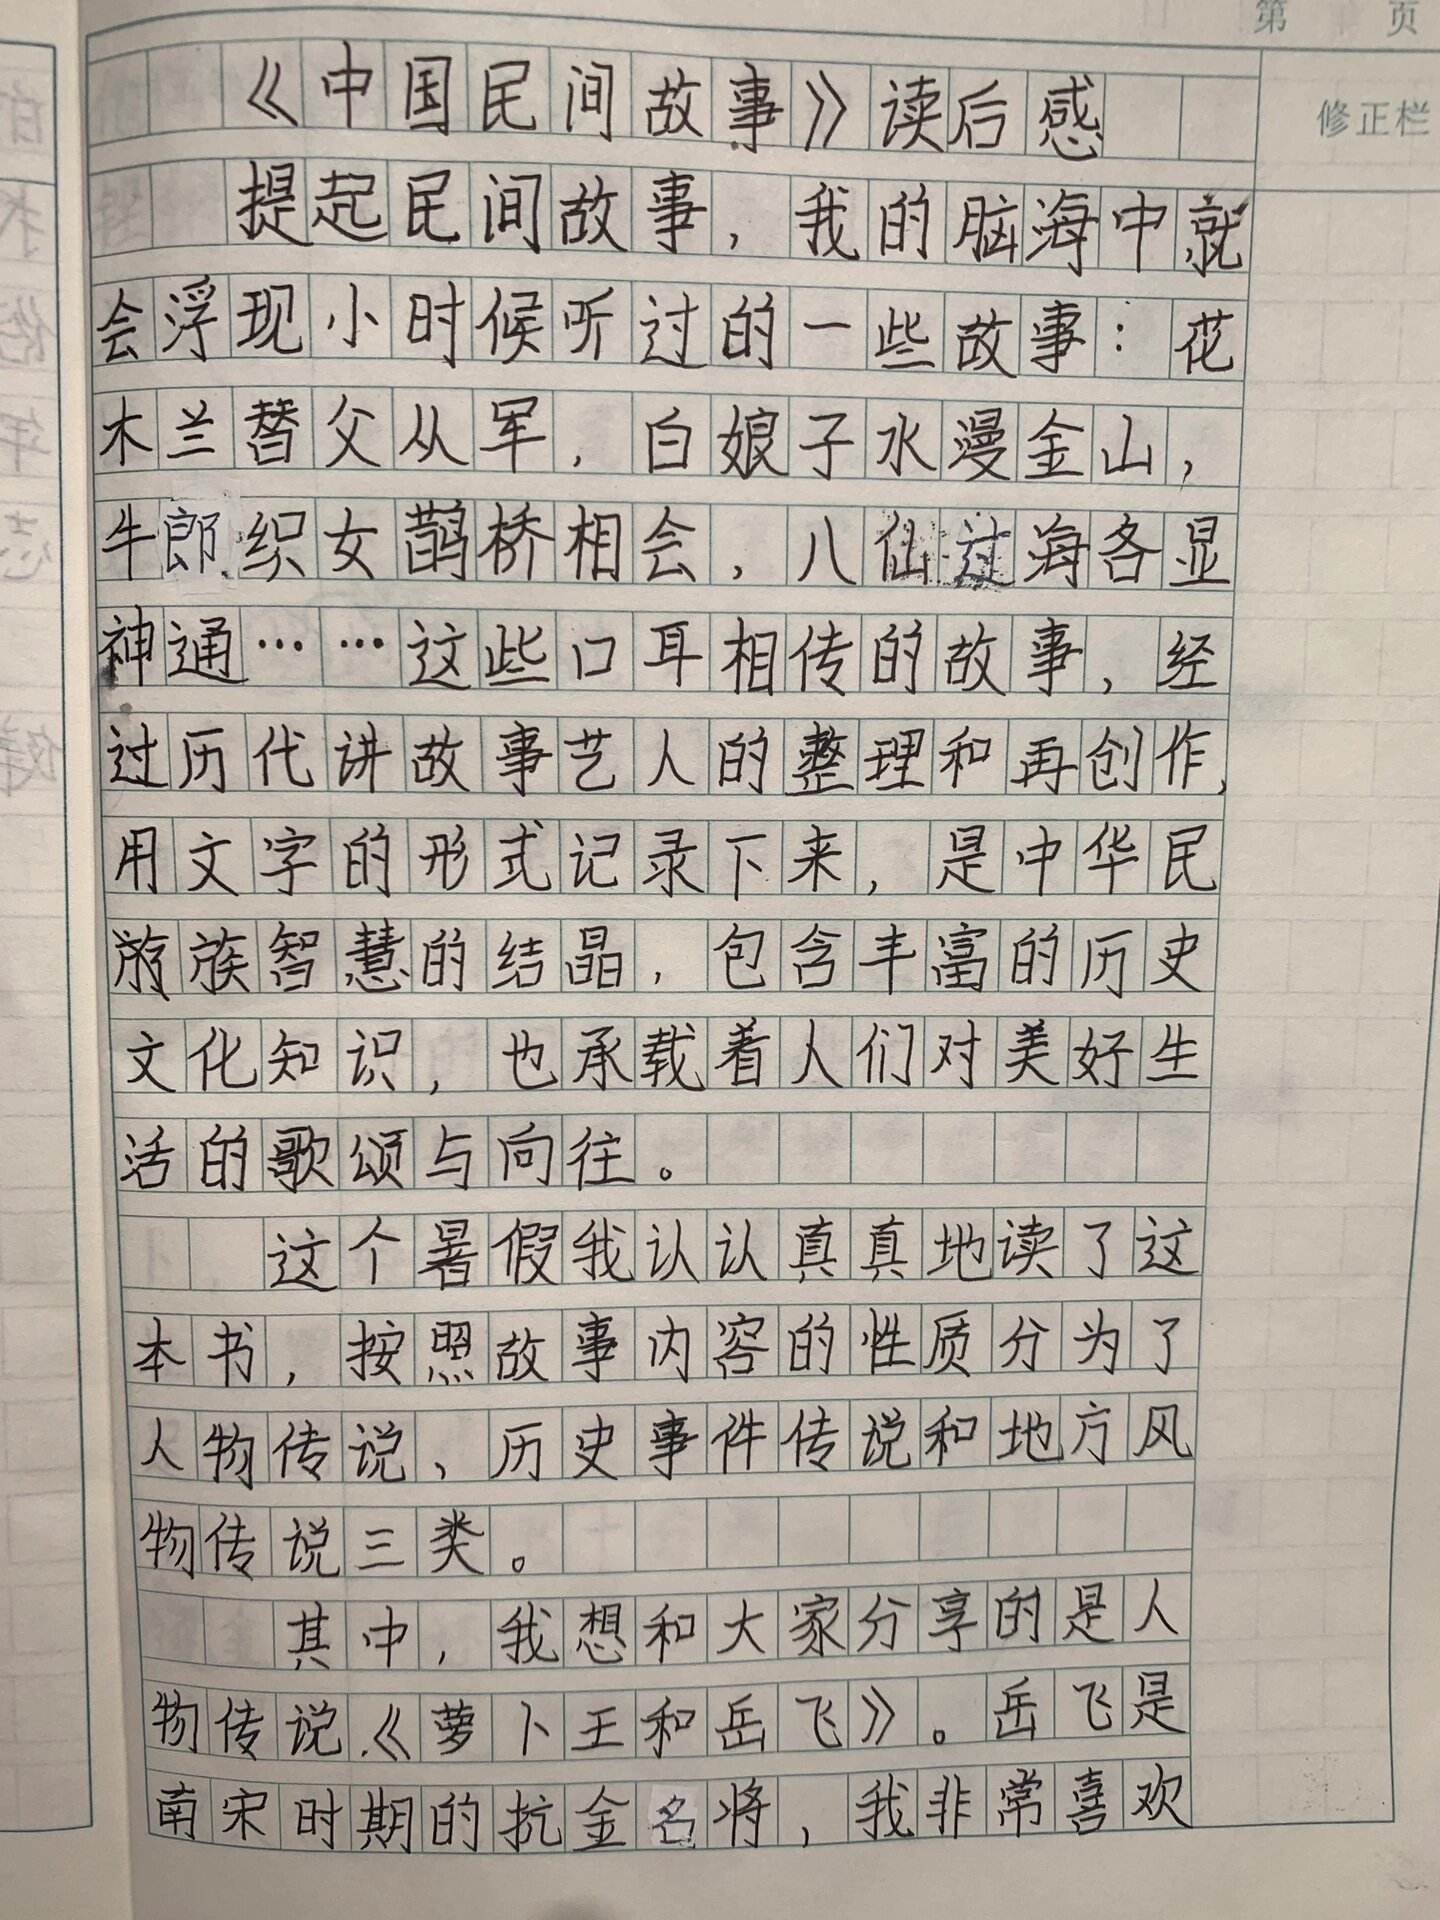 第 页
修正栏
《中国民间故事》读后感
提起民间故事，我的脑海中就
会浮现小时候听过的一些故事：花
木兰替父从军，白娘子水漫金山，
牛郎织女鹊桥相会，八仙过海各显
神通……这些口耳相传的故事，经
过历代讲故事艺人的整理和再创作，
用文字的形式记录下来，是中华民
族族智慧的结晶，包含丰富的历史
文化知识，也承载着人们对美好生
活的歌颂与向往。
这个暑假我认认真真地读了这
本书，按照故事内容的性质分为了
人物传说、历史事件传说和地方风
物传说三类。
其中，我想和大家分享的是人
物传说《萝卜王和岳飞》。岳飞是
南宋时期的抗金名将，我非常喜欢